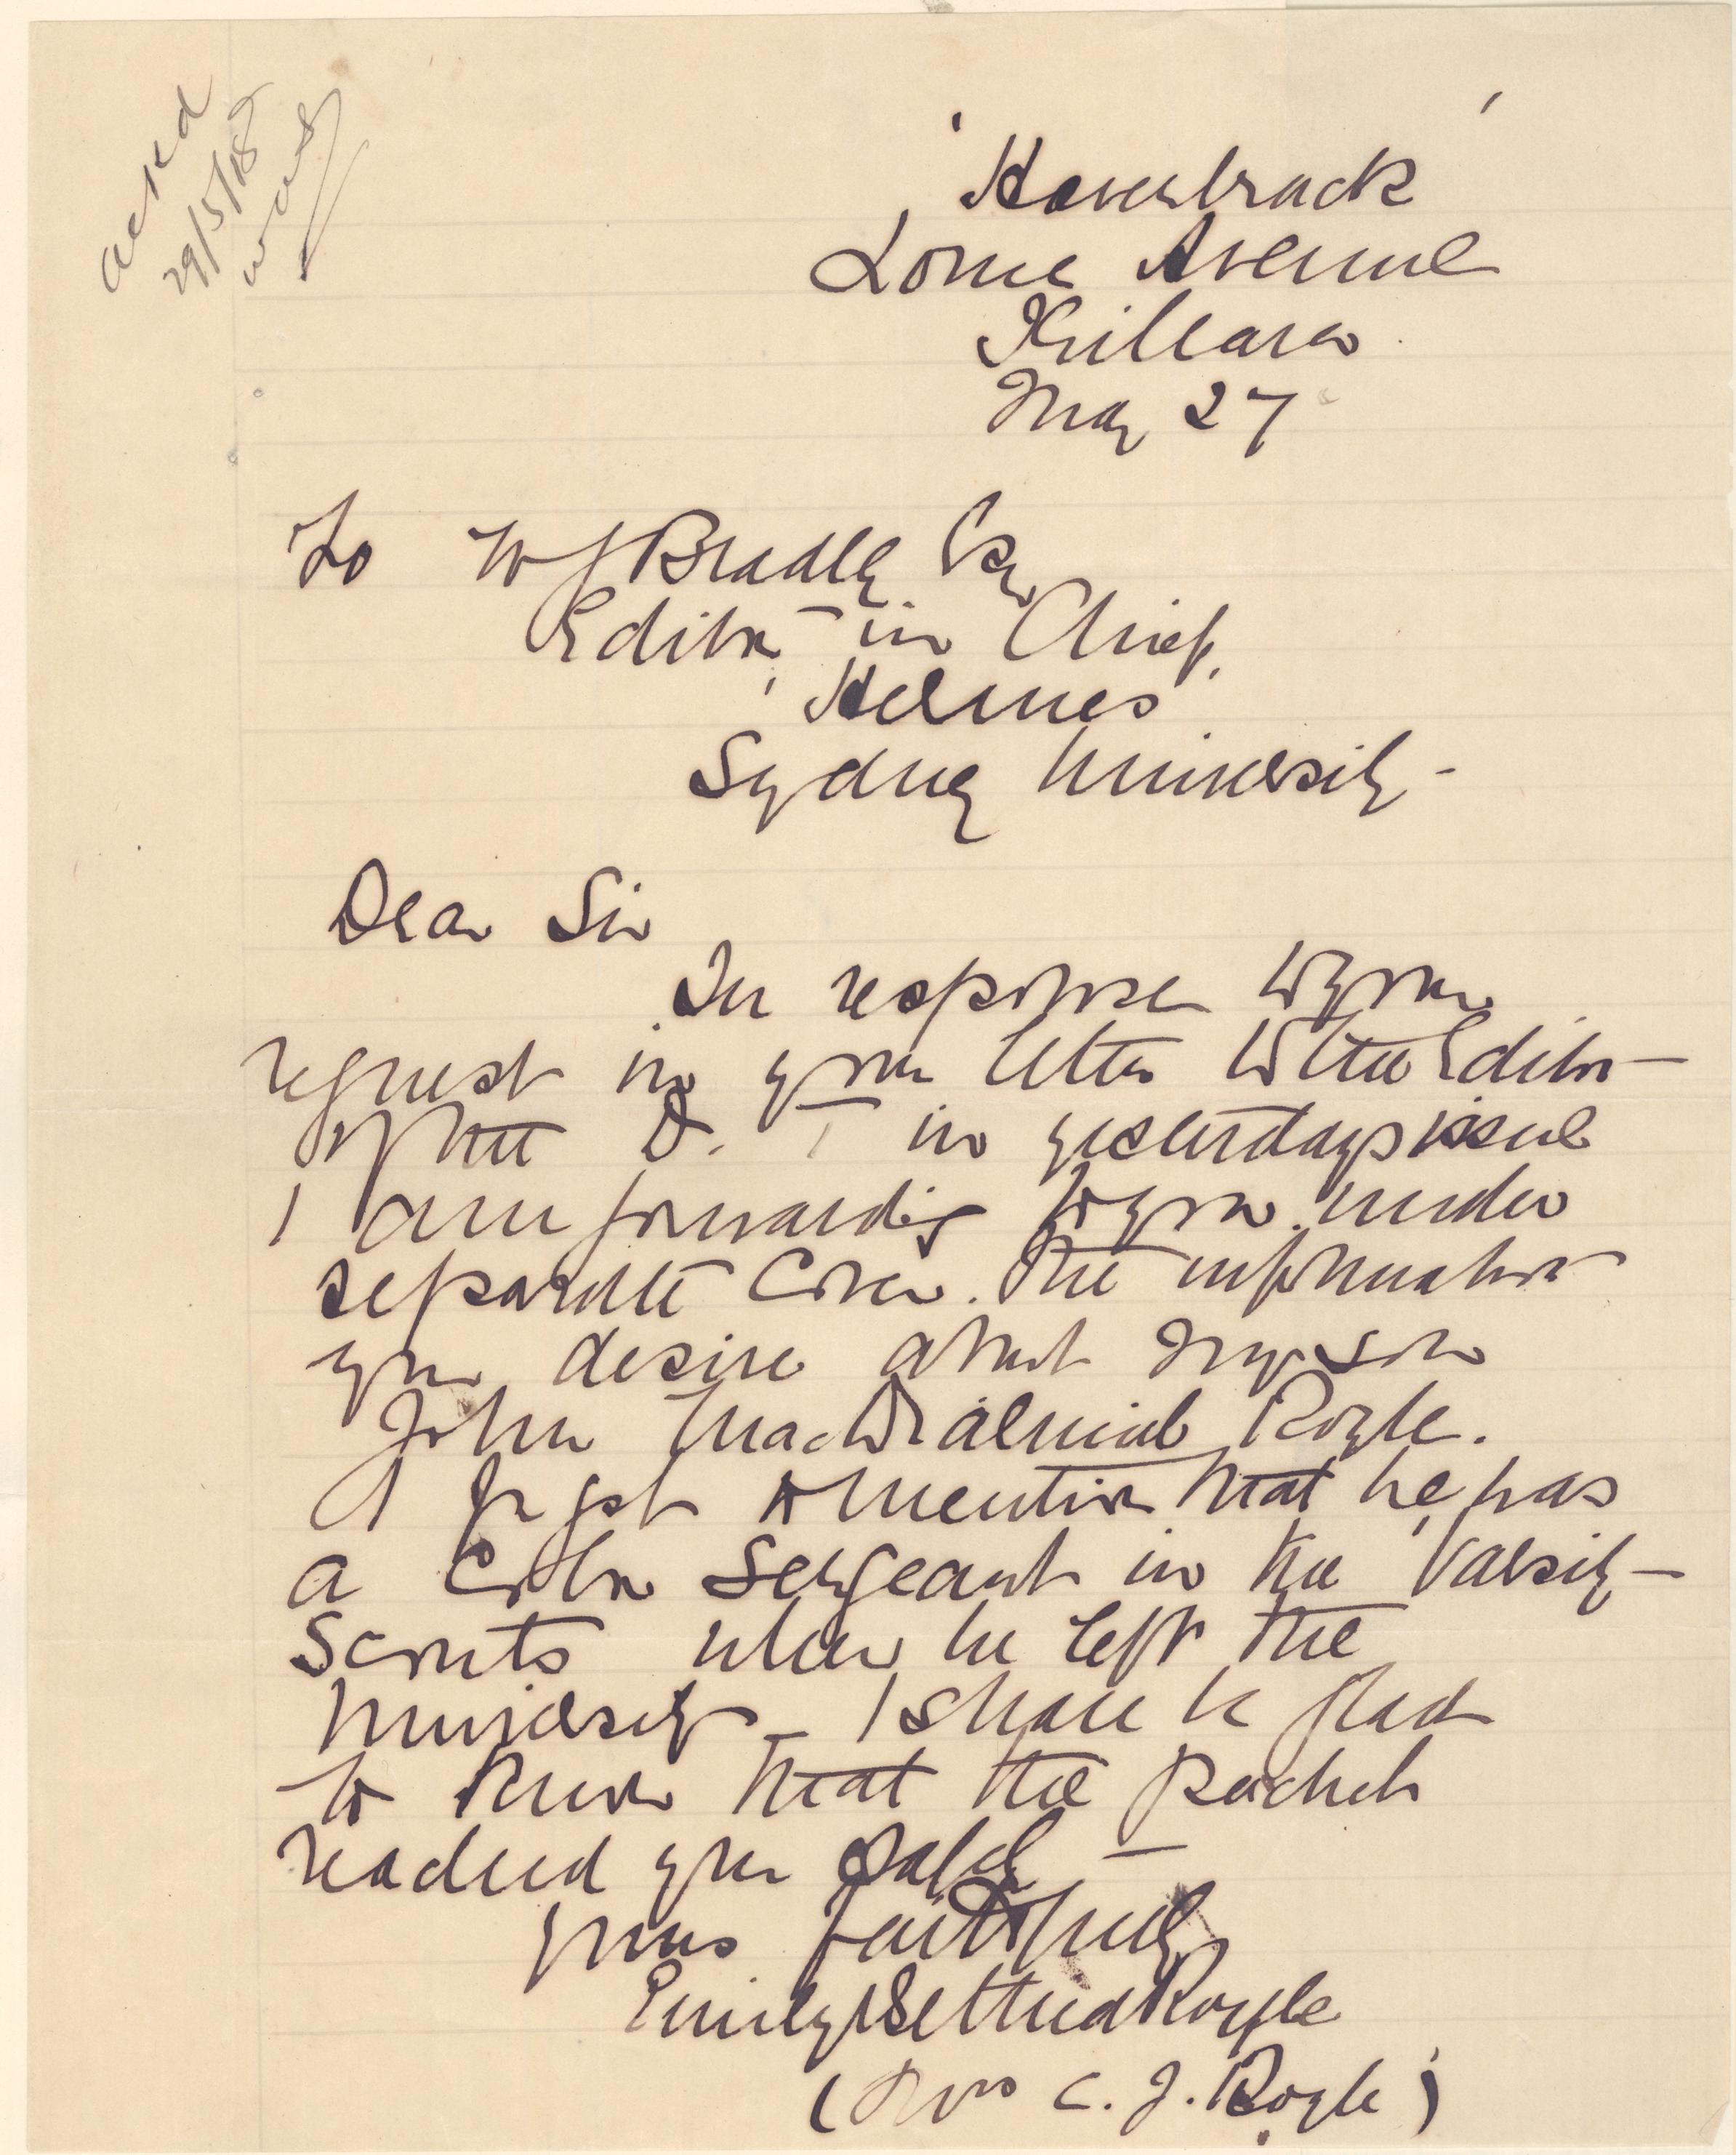 acked
29/5/18
'Haverbrack'
Lorne Avenue
Killara
May 27
To W J Bradley Esq
Editor in Chief
'Hermes'
Sydney University -
Dear Sir
In response to your
request in your letter to the Editor
of the D. T in yesterdays issue
I am forwarding to you under
separate cover the information
you desire about my son
John MacDiarmid Royle.
I forgot to mention that he was
a Color Sergeant in the Varsity
Scouts when he left the
University - I shall be glad
to know that the packet
reached you safely -
Yours faithfully
Emily Royle
(Mrs C. J. Royle)